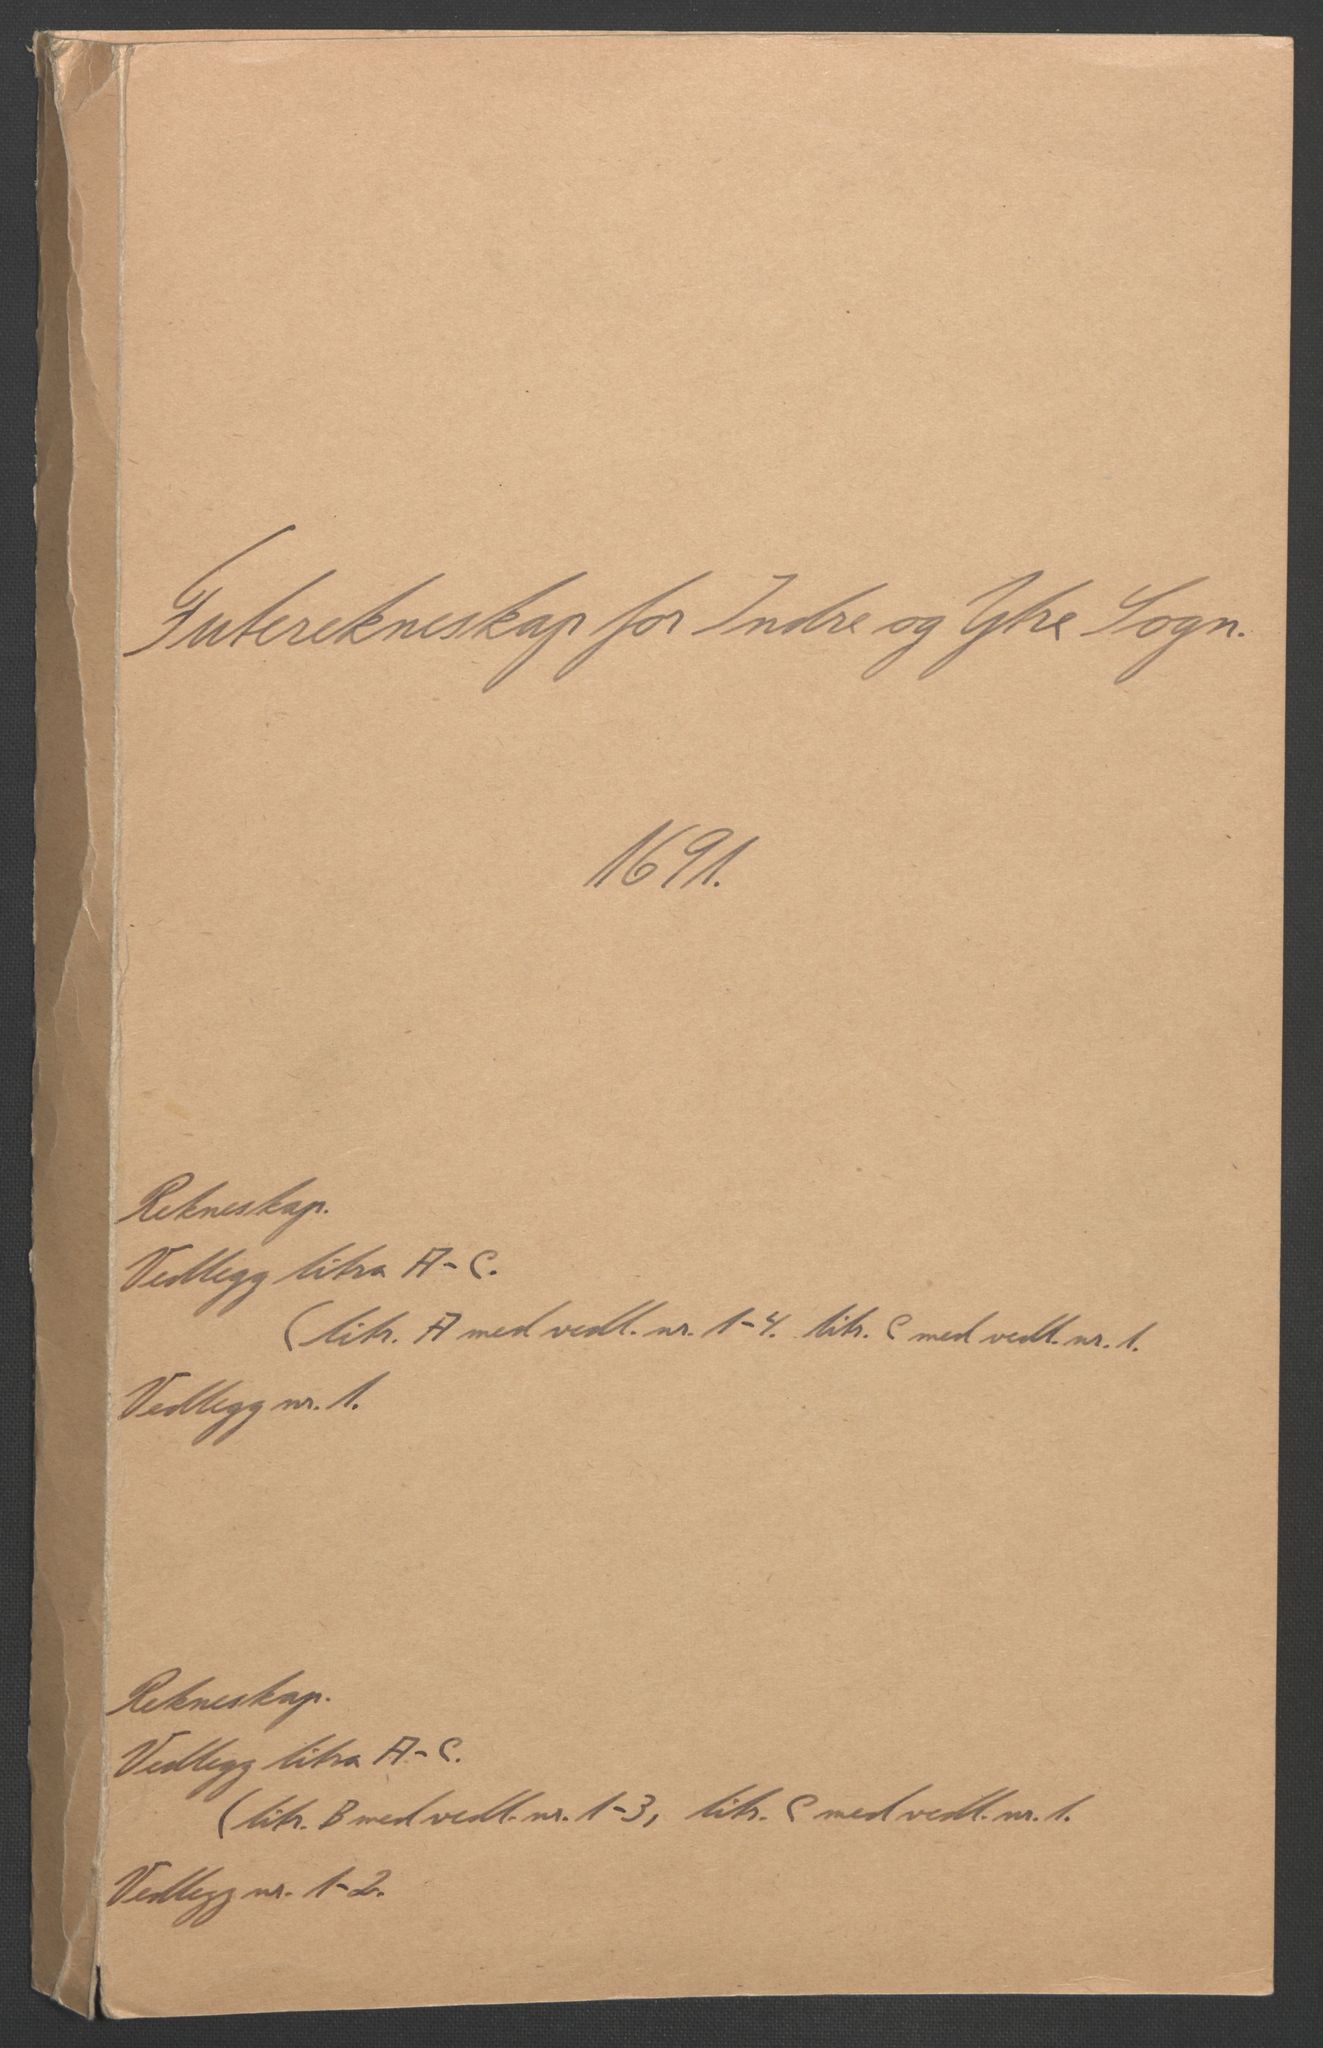 Futerekneskap for Indre og Ytre Sogn.
1691.
Rekneskap.
Vedlegg litra A-C.
(litr. A med vedl. nr. 1-4. litr. C med vedl. nr. 1.
Vedlegg nr. 1.
Rekneskap.
Vedlegg litra A-C.
(litr. B med vedl. nr. 1-3, litr. C med vedl. nr. 1.
Vedlegg nr. 1-2.